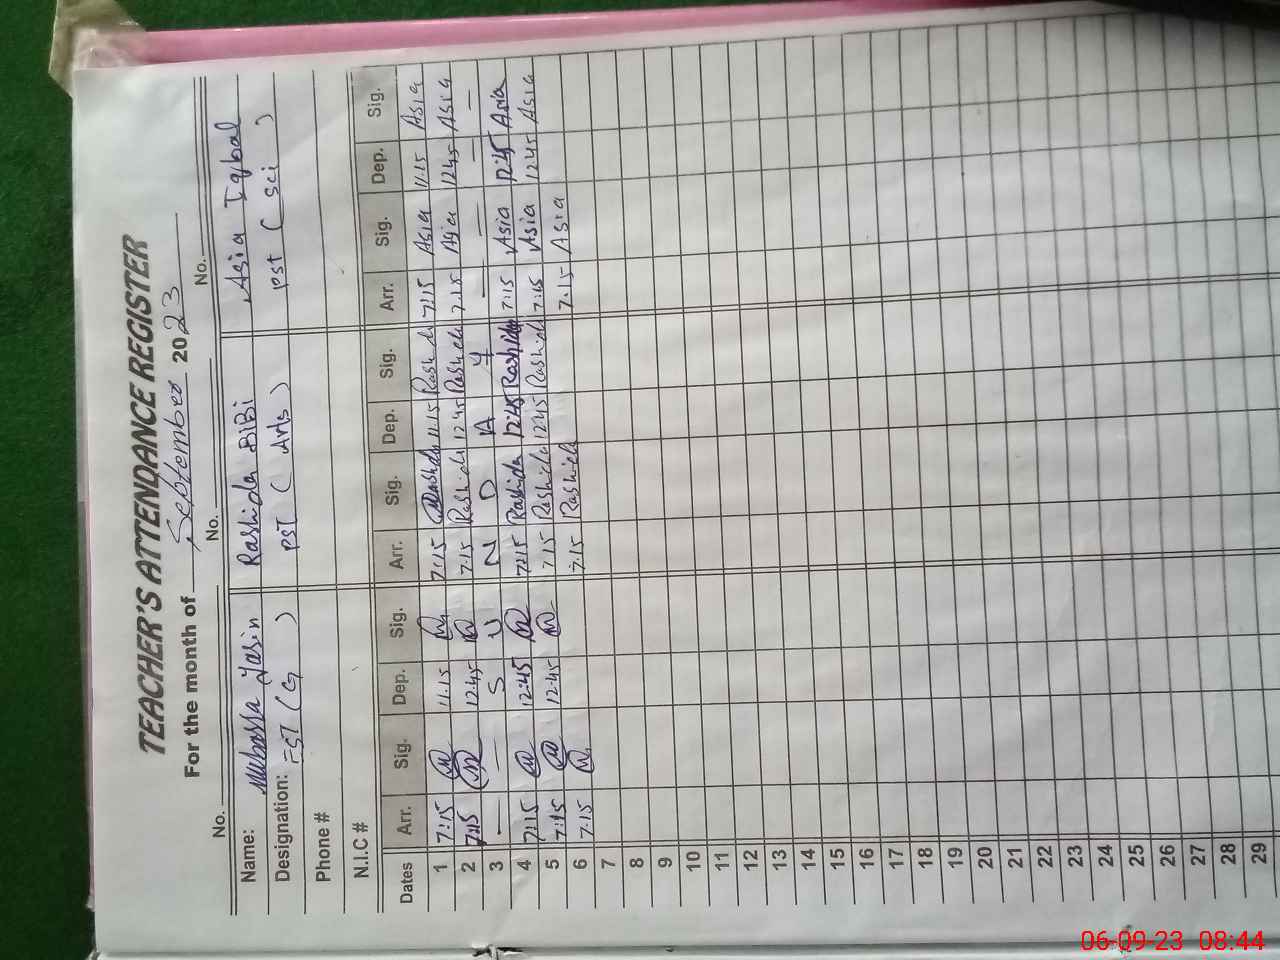 TEACHER'S ATTENDANCE REGISTER
For the month of September 2023
No. No. No.
Name: Mubassa Yasin Rashida BiBi Asia Iqbal
Designation: EST (G) PST (Arts) PST (Sci)
Phone #
N.I.C #
Dates Arr. Sig. Dep. Sig. Arr. Sig. Dep. Sig. Arr. Sig. Dep. Sig.
1 7:15 11:15 7:15 Rashida 11:15 Rashida 7:15 Asia 11:15 Asia
2 7:15 12:45 7:15 Rashida 12:45 Rashida 7:15 Asia 12:45 Asia
3 — — S U N D A Y — — — —
4 7:15 12:45 7:15 Rashida 12:45 Rashida 7:15 Asia 12:45 Asia
5 7:15 12:45 7:15 Rashida 12:45 Rashida 7:15 Asia 12:45 Asia
6 7:15 7:15 Rashida 7:15 Asia
7
8
9
10
11
12
13
14
15
16
17
18
19
20
21
22
23
24
25
26
27
28
29
06-09-23 08:44